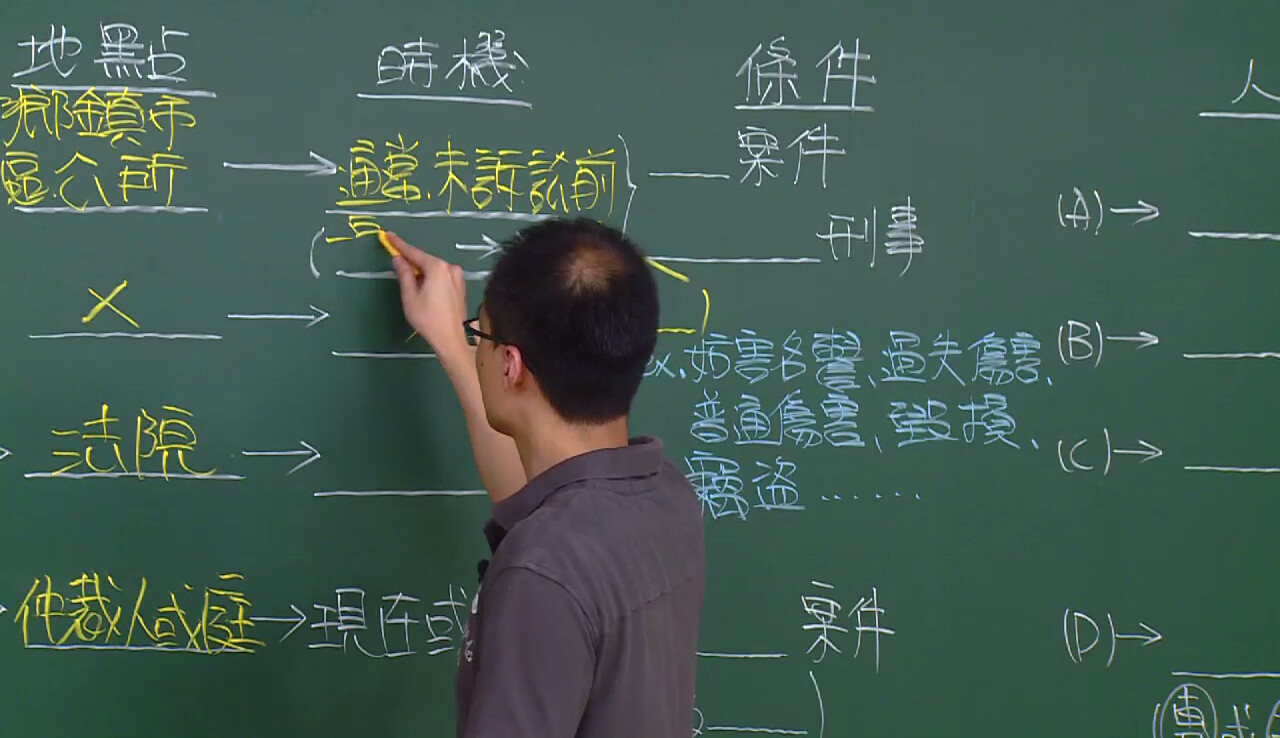 地點 時機 條件 人
鄉鎮市
區公所 → 通常未訴訟前 案件
( → 刑事 (A)→
X → ) (B)→
ex.妨害名譽、過失傷害、
普通傷害、毀損、
法院 → (C)→
竊盜……
仲裁人或庭→現在或 案件 (D)→
)
(專或